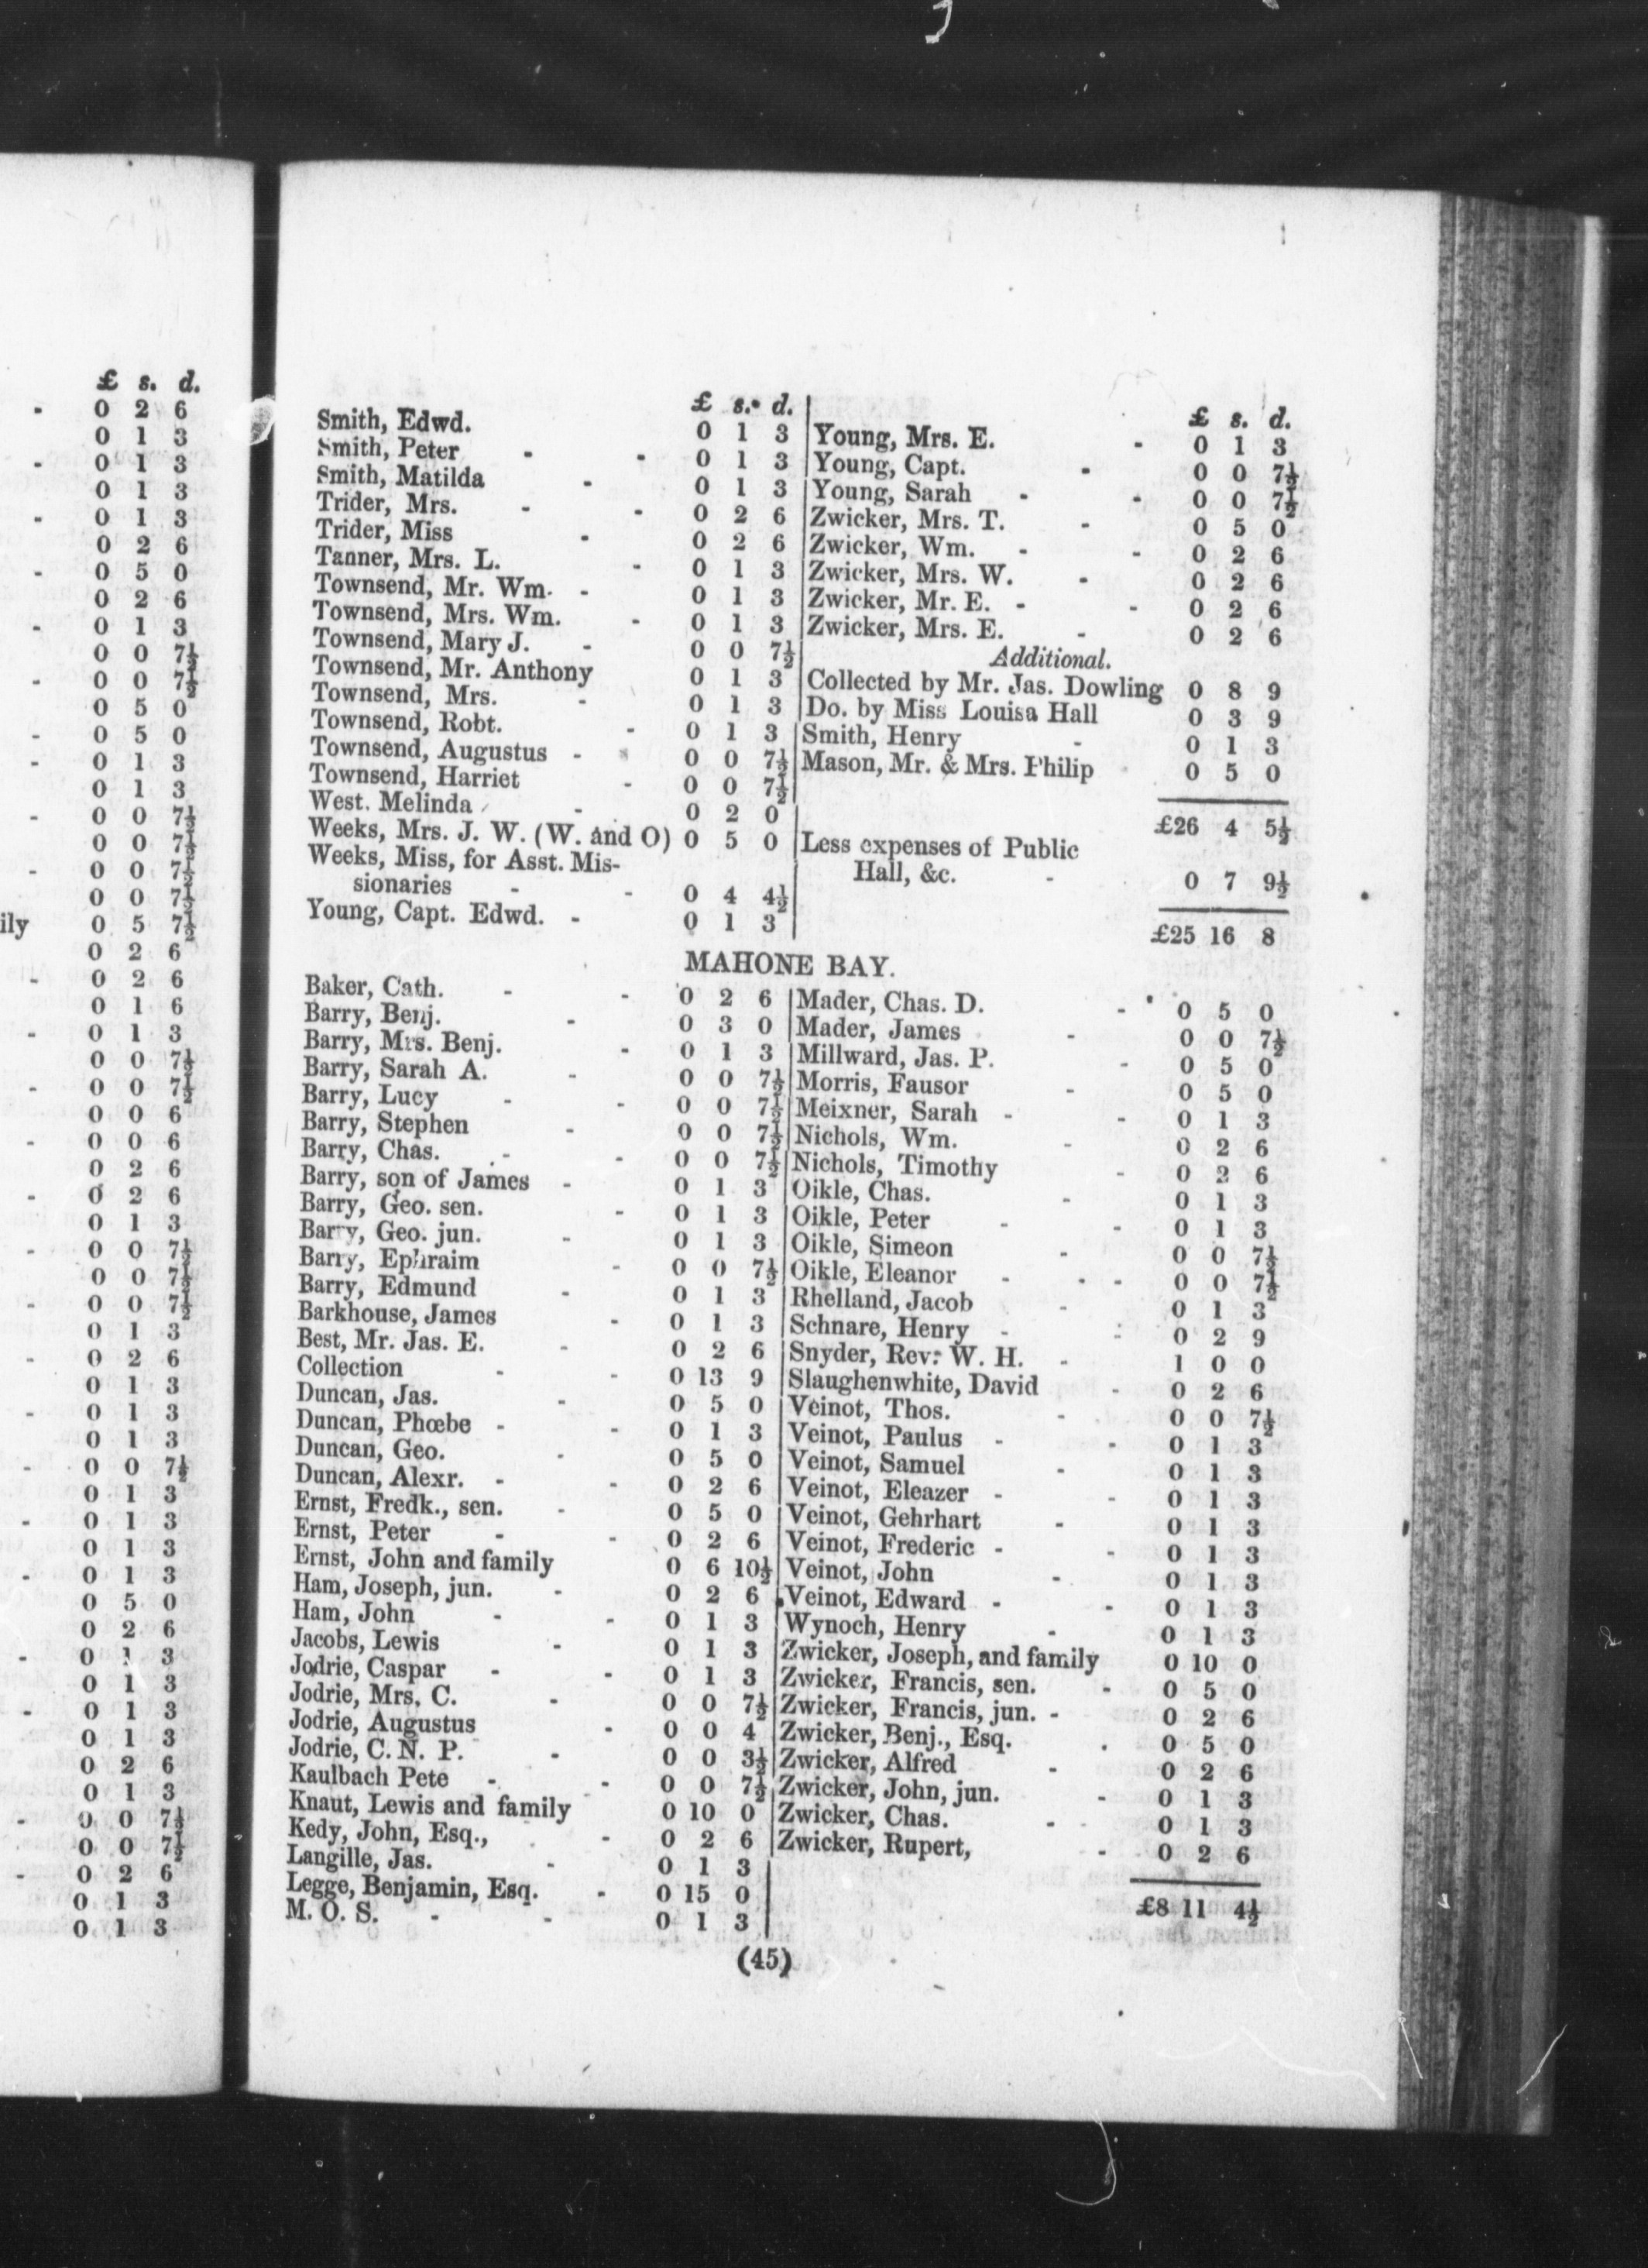 £ s. d.
- 0 2 6
0 1 3
- 0 1 3
0 1 3
- 0 1 3
0 2 6
- 0 5 0
0 2 6
- 0 1 3
0 0 7½
- 0 0 7½
0 5 0
- 0 5 0
- 0 1 3
0 1 3
- 0 0 7½
0 0 7½
- 0 0 7½
0 0 7½
ily 0 5 7½
0 2 6
- 0 2 6
0 1 6
- 0 1 3
0 0 7½
- 0 0 7½
0 0 6
- 0 0 6
0 2 6
- 0 2 6
0 1 3
- 0 0 7½
0 0 7½
- 0 0 7½
0 1 3
- 0 2 6
0 1 3
- 0 1 3
0 1 3
- 0 0 7½
0 1 3
- 0 1 3
0 1 3
- 0 1 3
0 5 0
0 2 6
- 0 1 3
0 1 3
- 0 1 3
0 1 3
0 2 6
0 1 3
- 0 0 7½
0 0 7½
- 0 2 6
0 1 3
0 1 3
£ s. d.
Smith, Edwd. 0 1 3
Smith, Peter - - 0 1 3
Smith, Matilda - 0 1 3
Trider, Mrs. - - 0 2 6
Trider, Miss - 0 2 6
Tanner, Mrs. L. - 0 1 3
Townsend, Mr. Wm. - 0 1 3
Townsend, Mrs. Wm. - 0 1 3
Townsend, Mary J. - 0 0 7½
Townsend, Mr. Anthony 0 1 3
Townsend, Mrs. - 0 1 3
Townsend, Robt. - 0 1 3
Townsend, Augustus - 0 0 7½
Townsend, Harriet - 0 0 7½
West. Melinda - 0 2 0
Weeks, Mrs. J. W. (W. and O) 0 5 0
Weeks, Miss, for Asst. Mis-
sionaries - - 0 4 4½
Young, Capt. Edwd. - 0 1 3
£ s. d.
Young, Mrs. E. - 0 1 3
Young, Capt. - 0 0 7½
Young, Sarah - - 0 0 7½
Zwicker, Mrs. T. - 0 5 0
Zwicker, Wm. - - 0 2 6
Zwicker, Mrs. W. - 0 2 6
Zwicker, Mr. E. - - 0 2 6
Zwicker, Mrs. E. - 0 2 6
Additional.
Collected by Mr. Jas. Dowling 0 8 9
Do. by Miss Louisa Hall 0 3 9
Smith, Henry - 0 1 3
Mason, Mr. & Mrs. Philip 0 5 0
£26 4 5½
Less expenses of Public
Hall, &c. - 0 7 9½
£25 16 8
MAHONE BAY.
Baker, Cath. - - 0 2 6
Barry, Benj. - 0 3 0
Barry, Mrs. Benj. - 0 1 3
Barry, Sarah A. - 0 0 7½
Barry, Lucy - - 0 0 7½
Barry, Stephen - 0 0 7½
Barry, Chas. - - 0 0 7½
Barry, son of James - 0 1 3
Barry, Geo. sen. - 0 1 3
Barry, Geo. jun. - 0 1 3
Barry, Ephraim - 0 0 7½
Barry, Edmund - 0 1 3
Barkhouse, James - 0 1 3
Best, Mr. Jas. E. - 0 2 6
Collection - - 0 13 9
Duncan, Jas. - 0 5 0
Duncan, Phœbe - - 0 1 3
Duncan, Geo. - 0 5 0
Duncan, Alexr. - - 0 2 6
Ernst, Fredk., sen. - 0 5 0
Ernst, Peter - - 0 2 6
Ernst, John and family 0 6 10½
Ham, Joseph, jun. - 0 2 6
Ham, John - - 0 1 3
Jacobs, Lewis - 0 1 3
Jodrie, Caspar - - 0 1 3
Jodrie, Mrs. C. - 0 0 7½
Jodrie, Augustus - 0 0 4
Jodrie, C. N. P. - 0 0 3½
Kaulbach Pete - - 0 0 7½
Knaut, Lewis and family 0 10 0
Kedy, John, Esq., - 0 2 6
Langille, Jas. - 0 1 3
Legge, Benjamin, Esq. - 0 15 0
M. O. S. - - 0 1 3
Mader, Chas. D. - 0 5 0
Mader, James - 0 0 7½
Millward, Jas. P. - 0 5 0
Morris, Fausor - 0 5 0
Meixner, Sarah - - 0 1 3
Nichols, Wm. - 0 2 6
Nichols, Timothy - 0 2 6
Oikle, Chas. - 0 1 3
Oikle, Peter - - 0 1 3
Oikle, Simeon - 0 0 7½
Oikle, Eleanor - - 0 0 7½
Rhelland, Jacob - 0 1 3
Schnare, Henry - - 0 2 9
Snyder, Rev. W. H. - 1 0 0
Slaughenwhite, David - 0 2 6
Veinot, Thos. - 0 0 7½
Veinot, Paulus - - 0 1 3
Veinot, Samuel - 0 1 3
Veinot, Eleazer - - 0 1 3
Veinot, Gehrhart - 0 1 3
Veinot, Frederic - - 0 1 3
Veinot, John - 0 1 3
Veinot, Edward - - 0 1 3
Wynoch, Henry - 0 1 3
Zwicker, Joseph, and family 0 10 0
Zwicker, Francis, sen. - 0 5 0
Zwicker, Francis, jun. - 0 2 6
Zwicker, Benj., Esq. - 0 5 0
Zwicker, Alfred - 0 2 6
Zwicker, John, jun. - 0 1 3
Zwicker, Chas. - - 0 1 3
Zwicker, Rupert, - 0 2 6
£8 11 4½
(45)